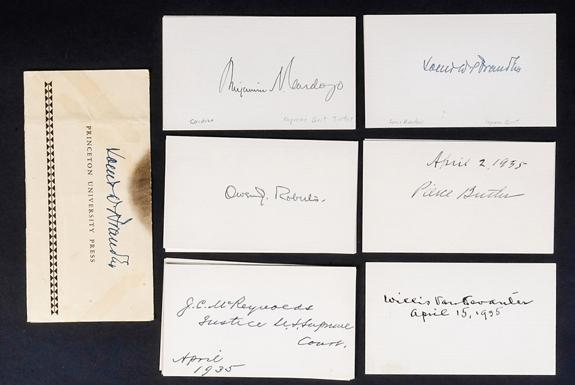 Louis D Brandeis
PRINCETON UNIVERSITY PRESS
Benjamin N Cardozo
Cardozo Supreme Court Justice
Louis D Brandeis
Louis Brandeis Supreme Court
Owen J. Roberts.
April 2, 1935
Pierce Butler
J.C. McReynolds
Justice U.S. Supreme
Court.
April
1935
Willis Van Devanter
April 15, 1935